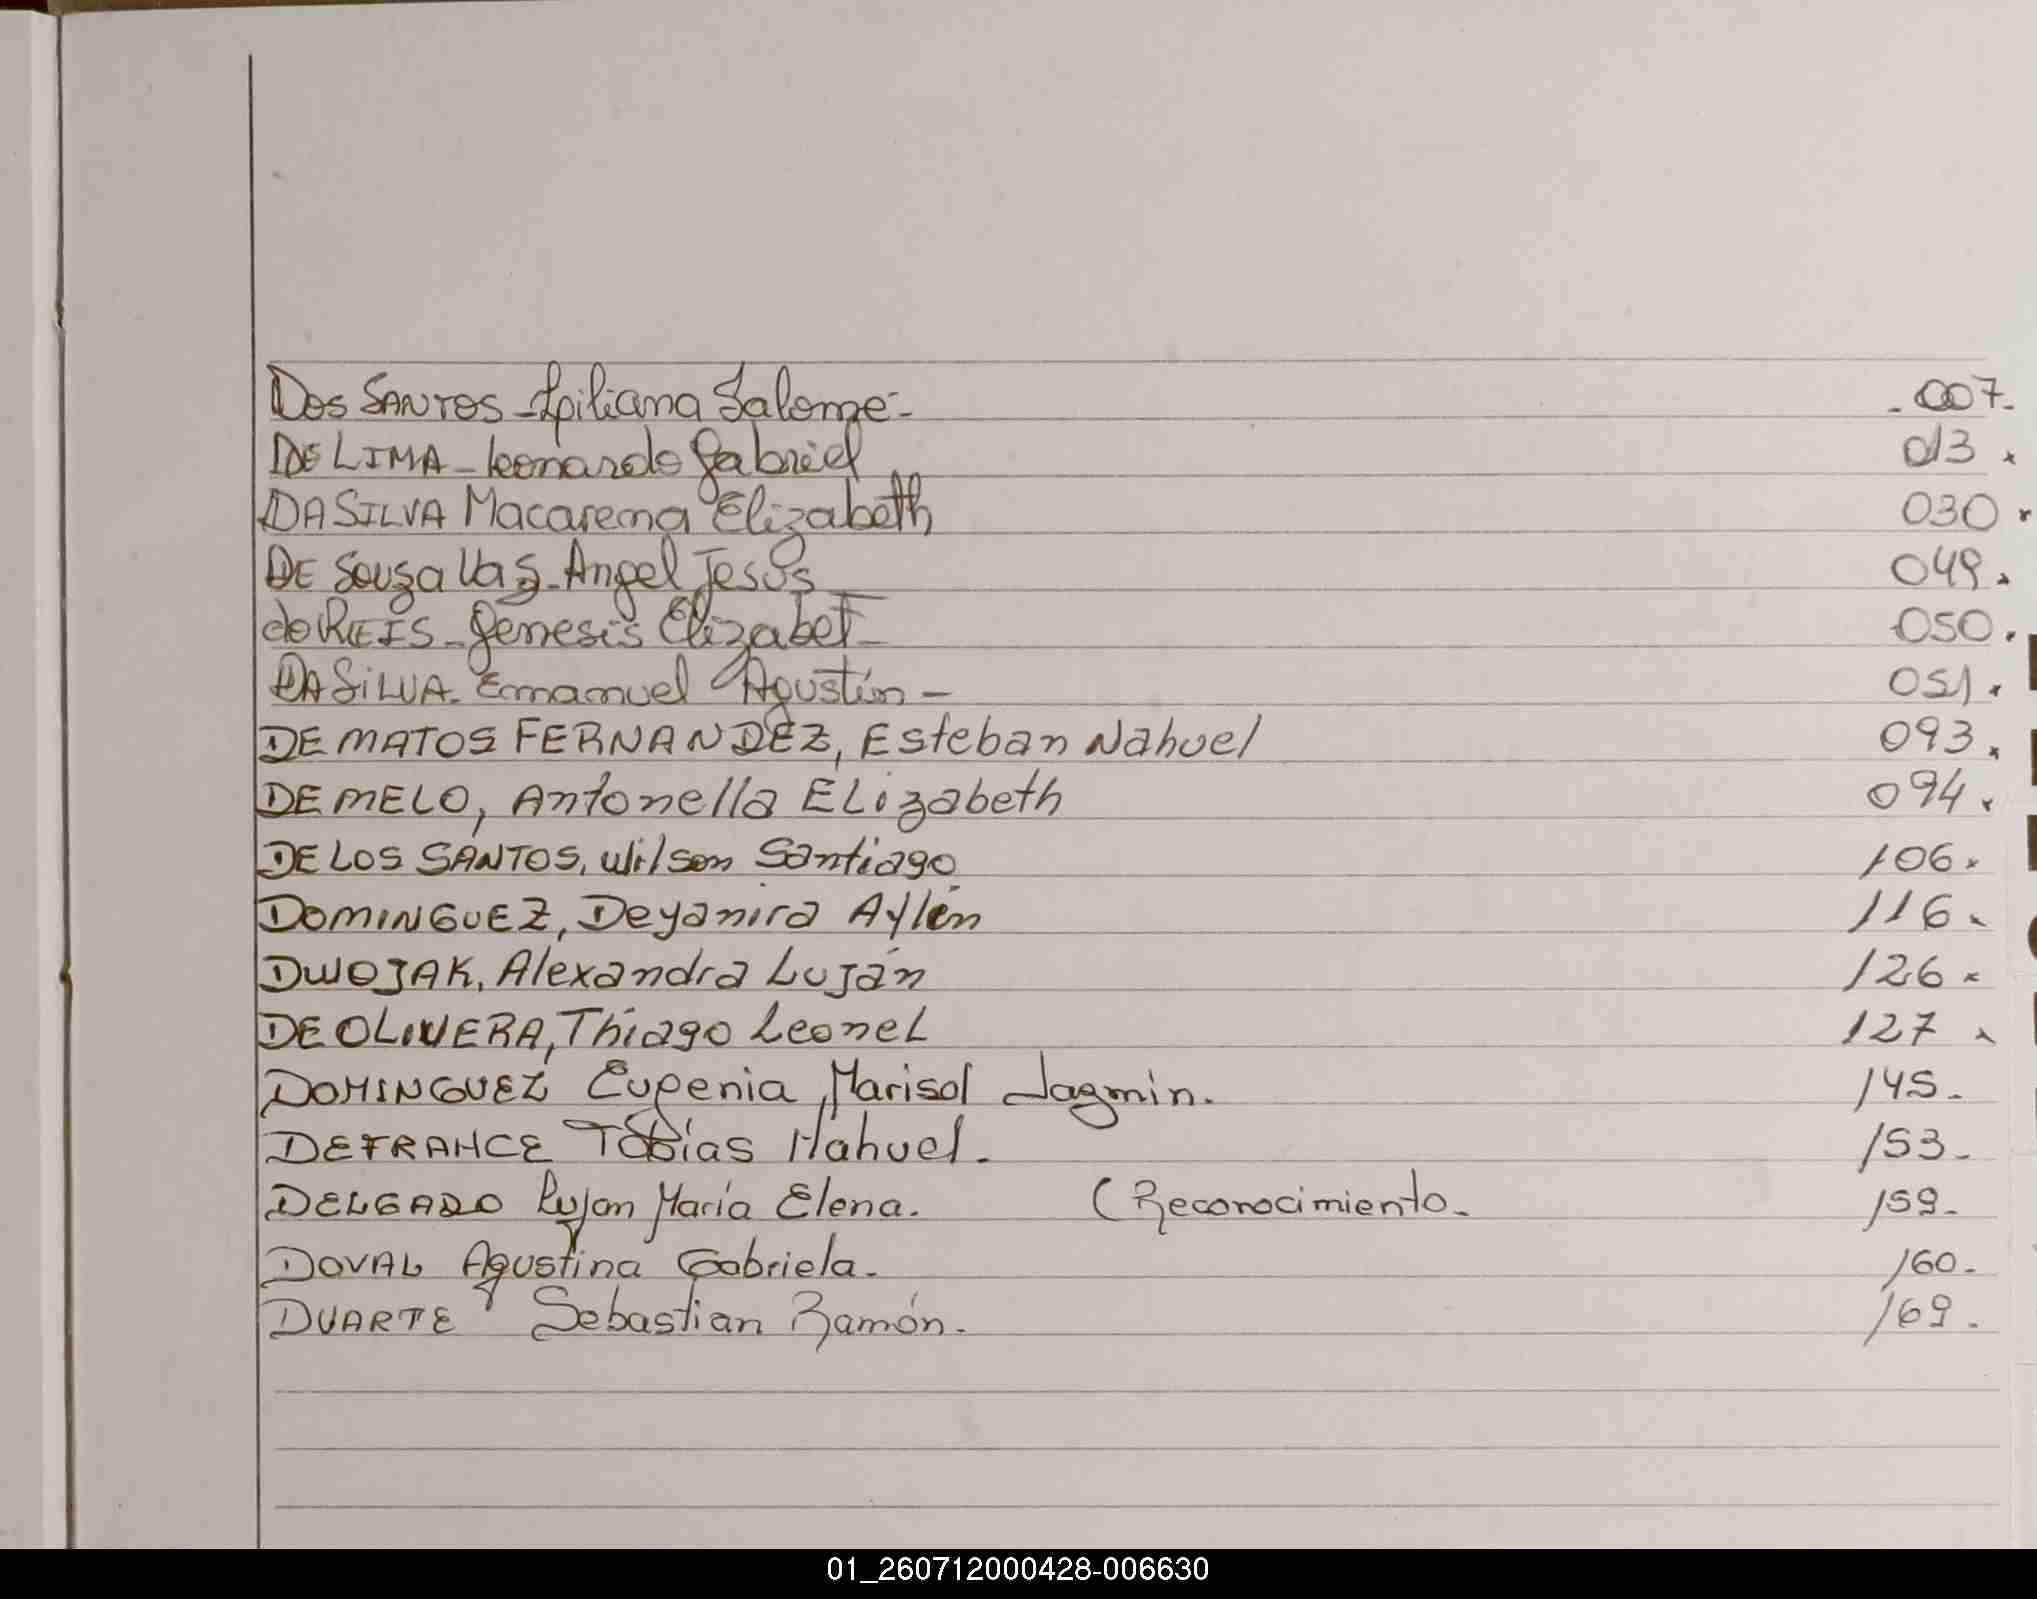 Dos SANTOS - Liliana Salome - - 007 -
DE LIMA - Leonardo Gabriel 013 .
DA SILVA Macarena Elizabeth 030 .
DE Souza Vaz - Angel Jesús 049 .
do REIS - Genesis Elizabet - 050 .
DA SiLVA - Emanuel Agustín - 051 .
DE MATOS FERNANDEZ, Esteban Nahuel 093 .
DE MELO, Antonella ELizabeth 094 .
DE LOS SANTOS, Wilson Santiago 106 .
DOMINGUEZ, Deyanira Aylén 116 .
DWOJAK, Alexandra Luján 126 .
DE OLIVERA, Thiago LeoneL 127 .
DOMINGUEZ Eugenia Marisol Jazmin. 145 -
DEFRANCE Tobías Nahuel. 153 -
DELGADO Lujan María Elena. (Reconocimiento - 159 -
DOVAL Agustina Gabriela - 160 -
DUARTE Sebastian Ramón - 169 -
01_260712000428-006630